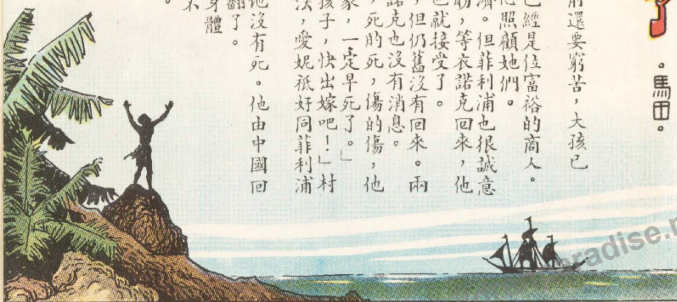 了
。馬田。
前還要窮苦,大孩已
已經是位富裕的商人。
心照顧她們。
濟。但菲利浦也很誠意
助,等衣諾克回來,他
也就接受了。
,但仍舊沒有回來。兩
諾克也沒有消息。
,死的死,傷的傷,他
家,一定早死了。」
孩子,快出嫁吧!」村
法,愛妮祇好同菲利浦
他沒有死。他由中國回
翻了。
身體
不
。
radise.r